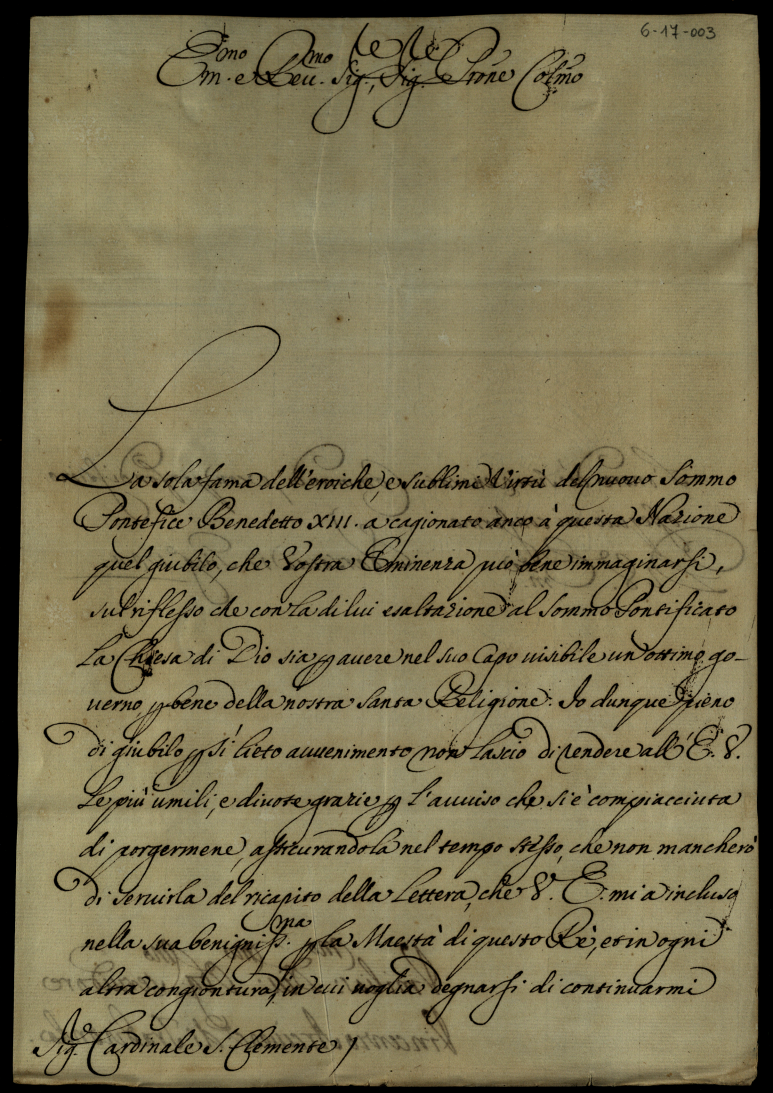 6-17-003
Em.mo e Reu.mo Sig.re, Sig.re P̃rone Col̃mo
La sola fama dell'eroiche, e sublime Virtù del nuouo Sommo
Pontefice Benedetto XIII. a cagionato anco à questa Nazione
quel giubilo, che Vostra Eminenza può bene immaginarsi,
sul riflesso che con la di lui esaltazione al sommo Pontificato
la Chiesa di Dio sia p auere nel suo Capo uisibile un ottimo go-
uerno p bene della nostra Santa Religione. Io dunque pieno
di giubilo p sì lieto auuenimento non lascio di rendere all' E. V.
le più umili, e diuote grazie p l'auuiso che si è compiacciuta
di porgermene, assicurandola nel tempo stesso, che non mancherò
di seruirla del ricapito della lettera, che V. E. mi a inclusa
nella sua benigniss.ma p la Maestà di questo Rè, et in ogni
altra congiontura, in cui uoglia degnarsi di continuarmi
Sig.re Cardinale S. Clemente /